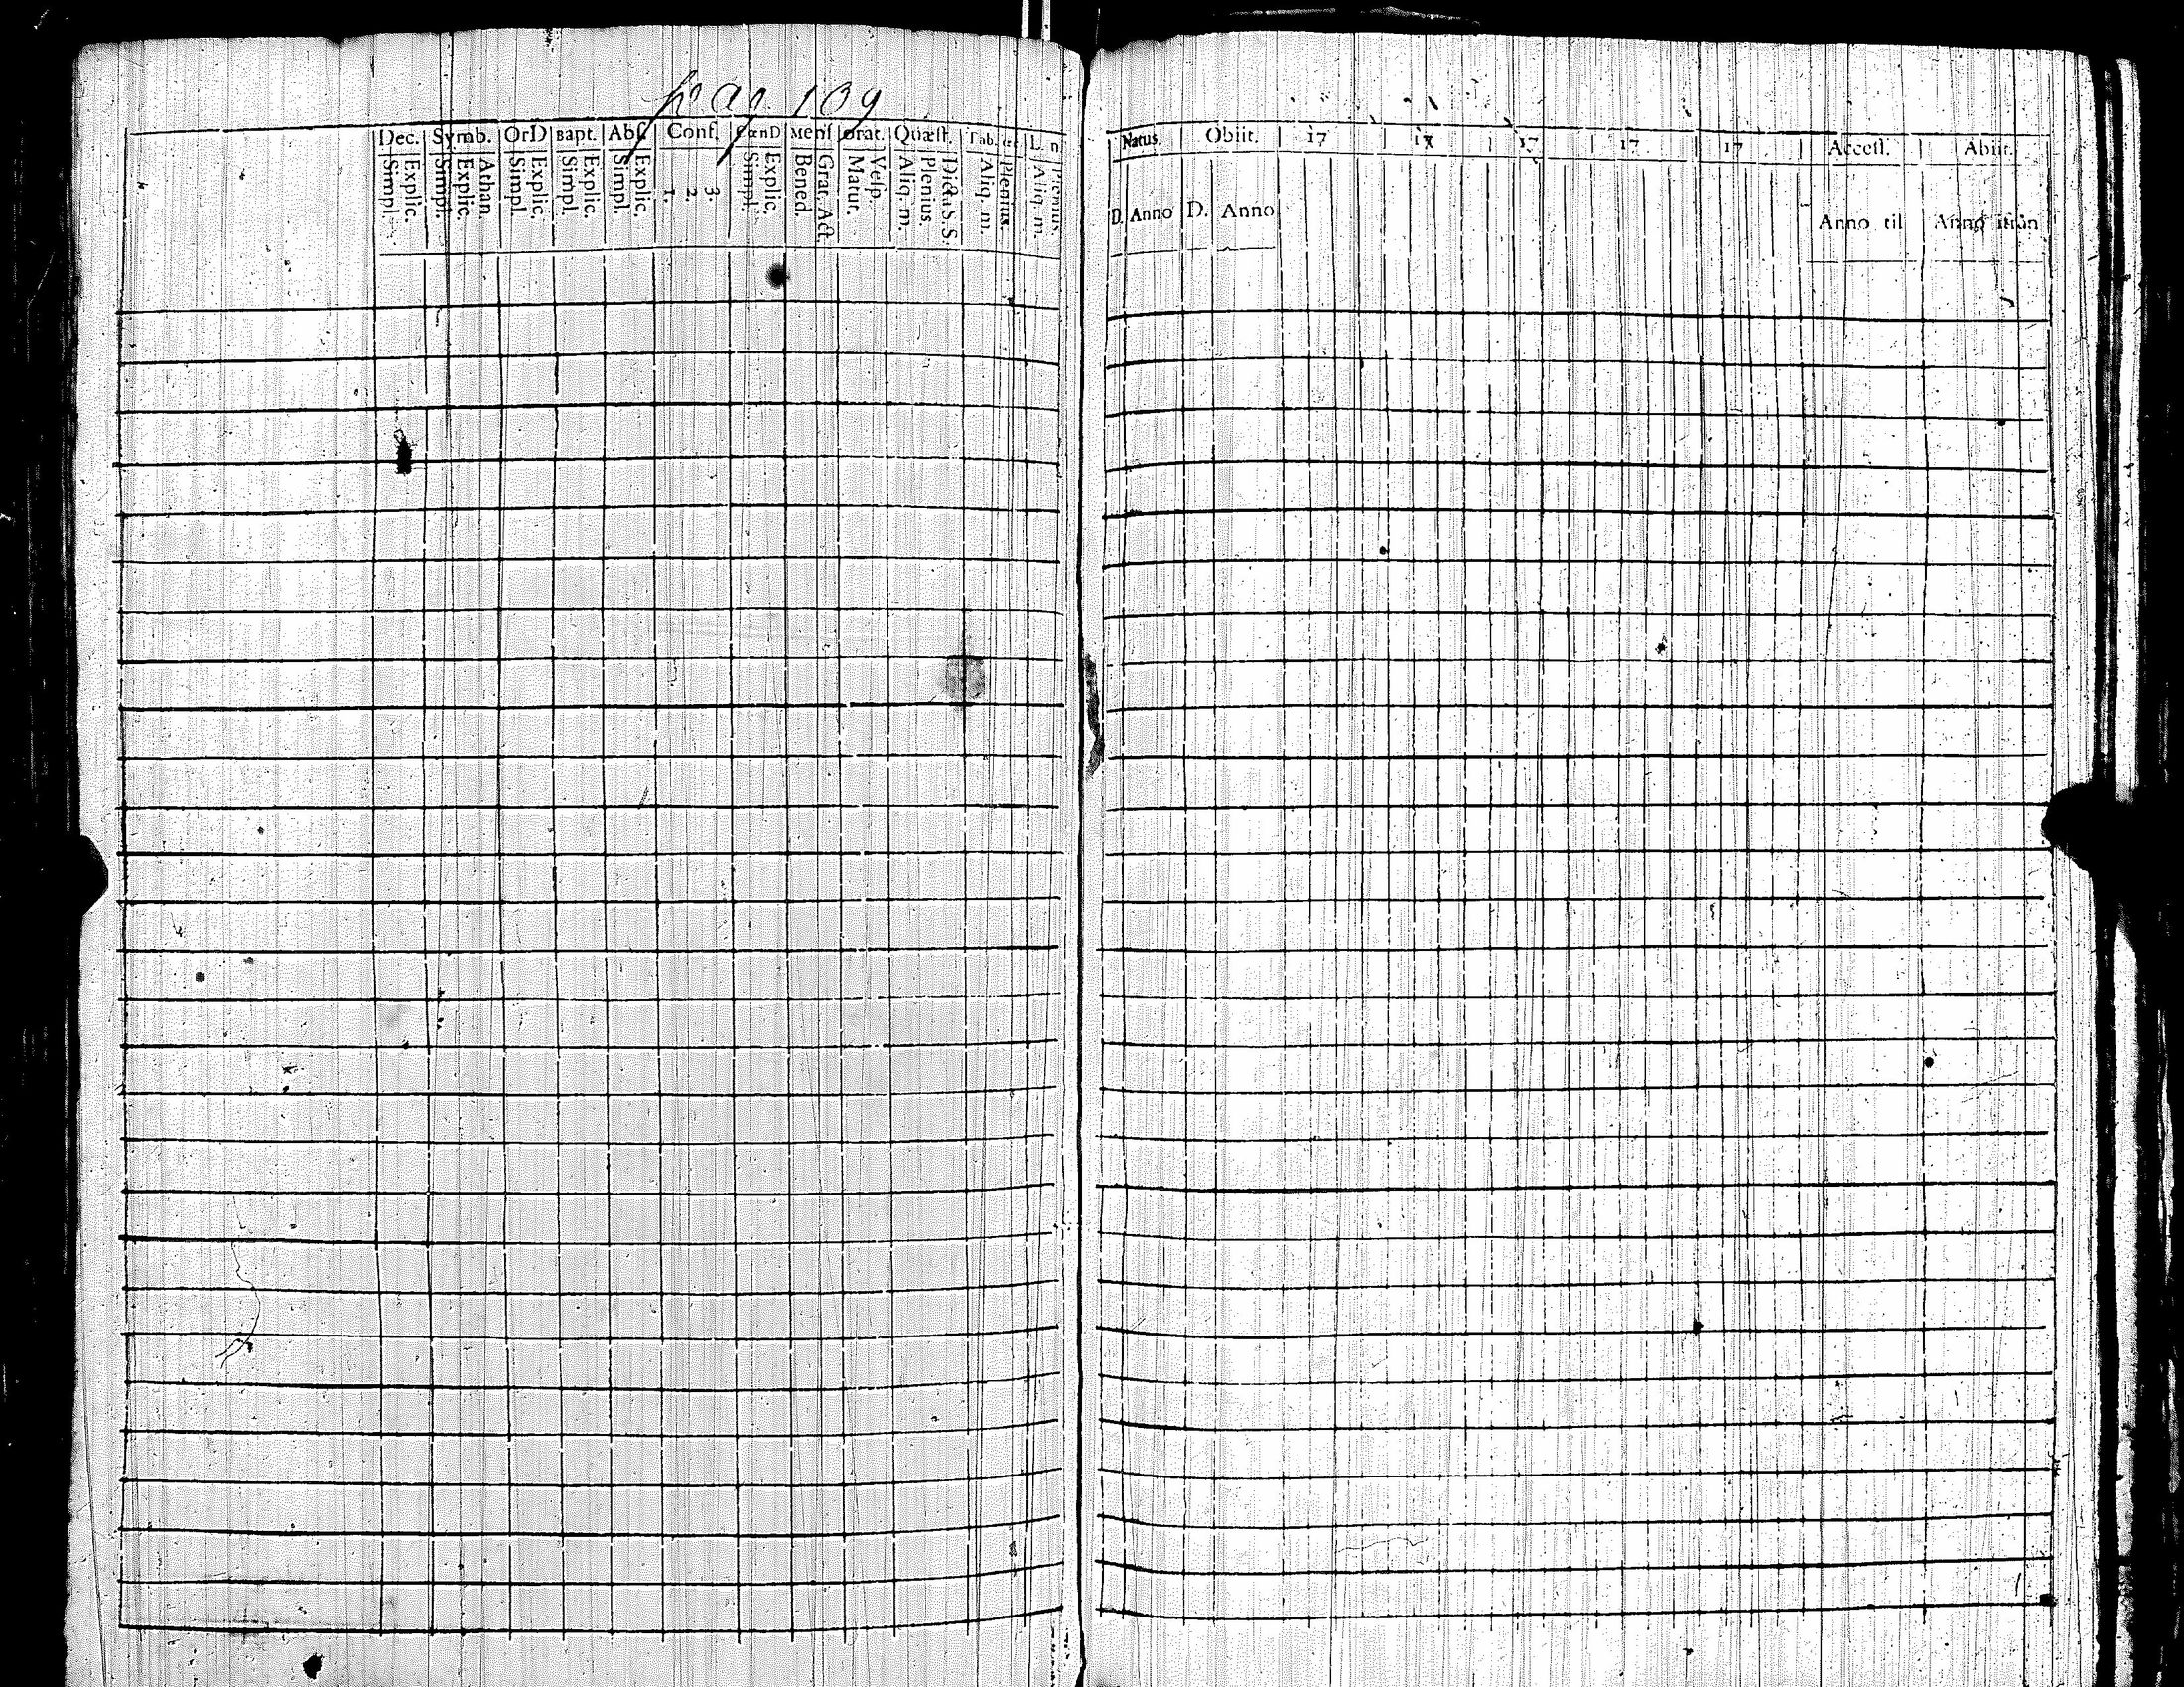 pag 109
Dec. Symb. OrD Bapt. Abſ. Conf. CœnD Menſ Orat. Quæſt. Tab.
Simpl. Explic. Simpl. Explic. Athan. Simpl. Explic. Simpl. Explic. Simpl. Explic. 1. 2. 3. Simpl. Explic. Bened. Grat. Act. Matut. Veſp. Aliq. m. Plenius. Dicta S.S. Aliq. m. Plenius. Aliq. m. Plenius.
Natus. Obiit. 17 17 17 17 17 Acceſſ. Abiit.
D. Anno D. Anno Anno til Anno ifrån